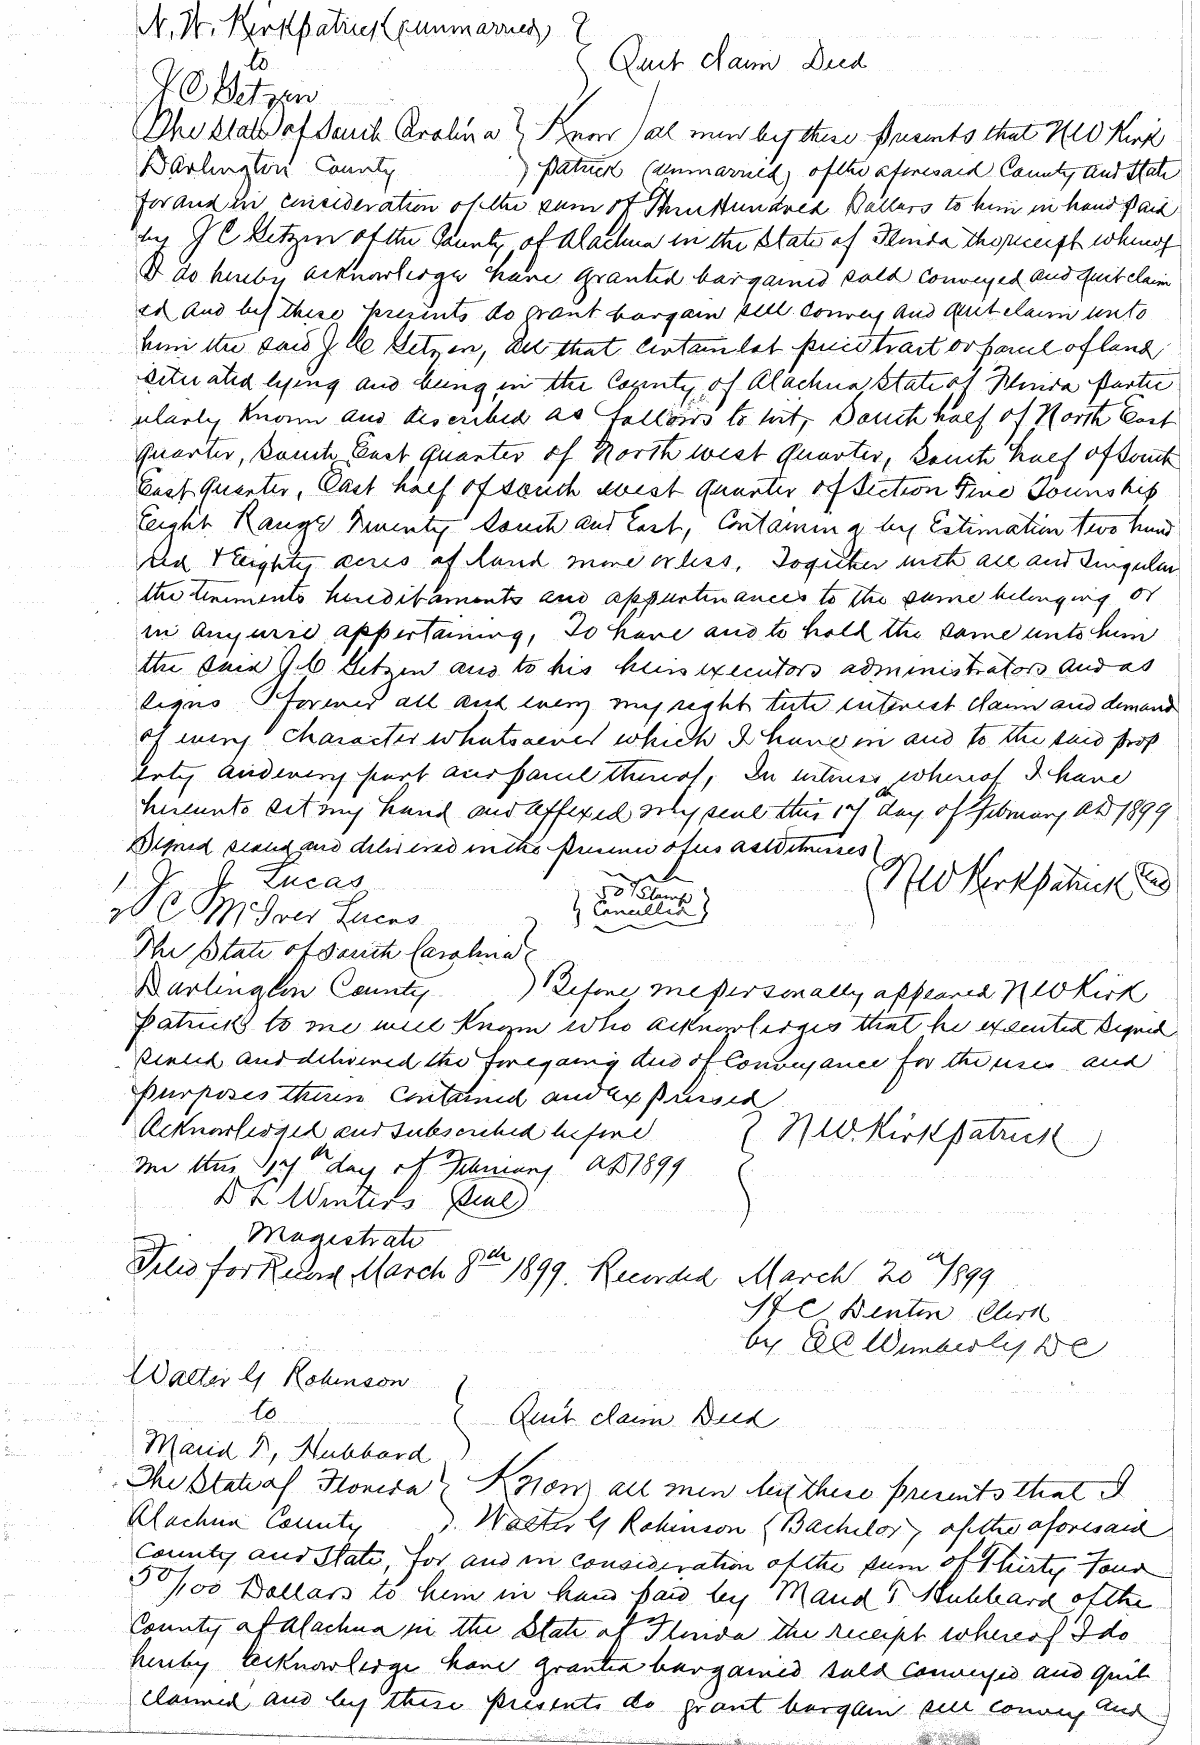 N. W. Kirkpatrick (unmarried)
to
Quit claim Deed
J C Getzen
The State of South Carolina Know all men by these presents that N W Kirk
Darlington County patrick (unmarried) of the aforesaid County and State
for and in consideration of the sum of Three Hundred Dollars to him in hand paid
by J C Getzen of the County of Alachua in the State of Florida the receipt whereof
I do hereby acknowledge have granted bargained sold conveyed and quit claim
ed and by these presents do grant bargain sell convey and quit claim unto
him the said J C Getzen, all that certain lot piece tract or parcel of land
situated lying and being in the County of Alachua State of Florida partic
ularly known and described as follows to wit, South half of North East
quarter, South East quarter of North west quarter, South half of South
East quarter, East half of south west quarter of Section Five Township
Eight Range Twenty South and East, Containing by Estimation two hund
red & Eighty acres of land more or less. Together with all and Singular
the tenements hereditaments and appurtinances to the same belonging or
in any wise appertaining, To have and to hold the same unto him
the said J C Getzen and to his heirs executors administrators and as
signs forever all and every my right title interest claim and demand
of every character whatsoever which I have in and to the said prop
erty and every part and parcel thereof, In witness whereof I have
hereunto set my hand and affixed my seal this 17th day of February AD 1899
Signed sealed and delivered in the presence of us as Witnesses
1 J. J. Lucas
N W Kirkpatrick Seal
50 Stamp
Cancelled
2 C McIver Lucas
The State of South Carolina
Darlington County Before me personally appeared N W Kirk
patrick to me well known who acknowledges that he executed signed
sealed and delivered the foregoing deed of Conveyance for the uses and
purposes therein contained and expressed
Acknowledged and subscribed before N W. Kirkpatrick
me this 17th day of February AD 1899
D L Winters Seal
Magistrate
Filed for Record March 8th 1899. Recorded March 20th/1899
H C Denton Clerk
by E C Wimberly D C
Walter G Robinson
to Quit claim Deed
Maud T, Hubbard
The State of Florida Know all men by these presents that I
Alachua County Walter G Robinson (Bachelor) of the aforesaid
County and State, for and in consideration of the sum of Thirty Four
50/100 Dollars to him in hand paid by Maud T Hubbard of the
County of Alachua in the State of Florida the receipt whereof I do
hereby acknowledge have granted bargained sold conveyed and quit
claimed and by these presents do grant bargain sell convey and